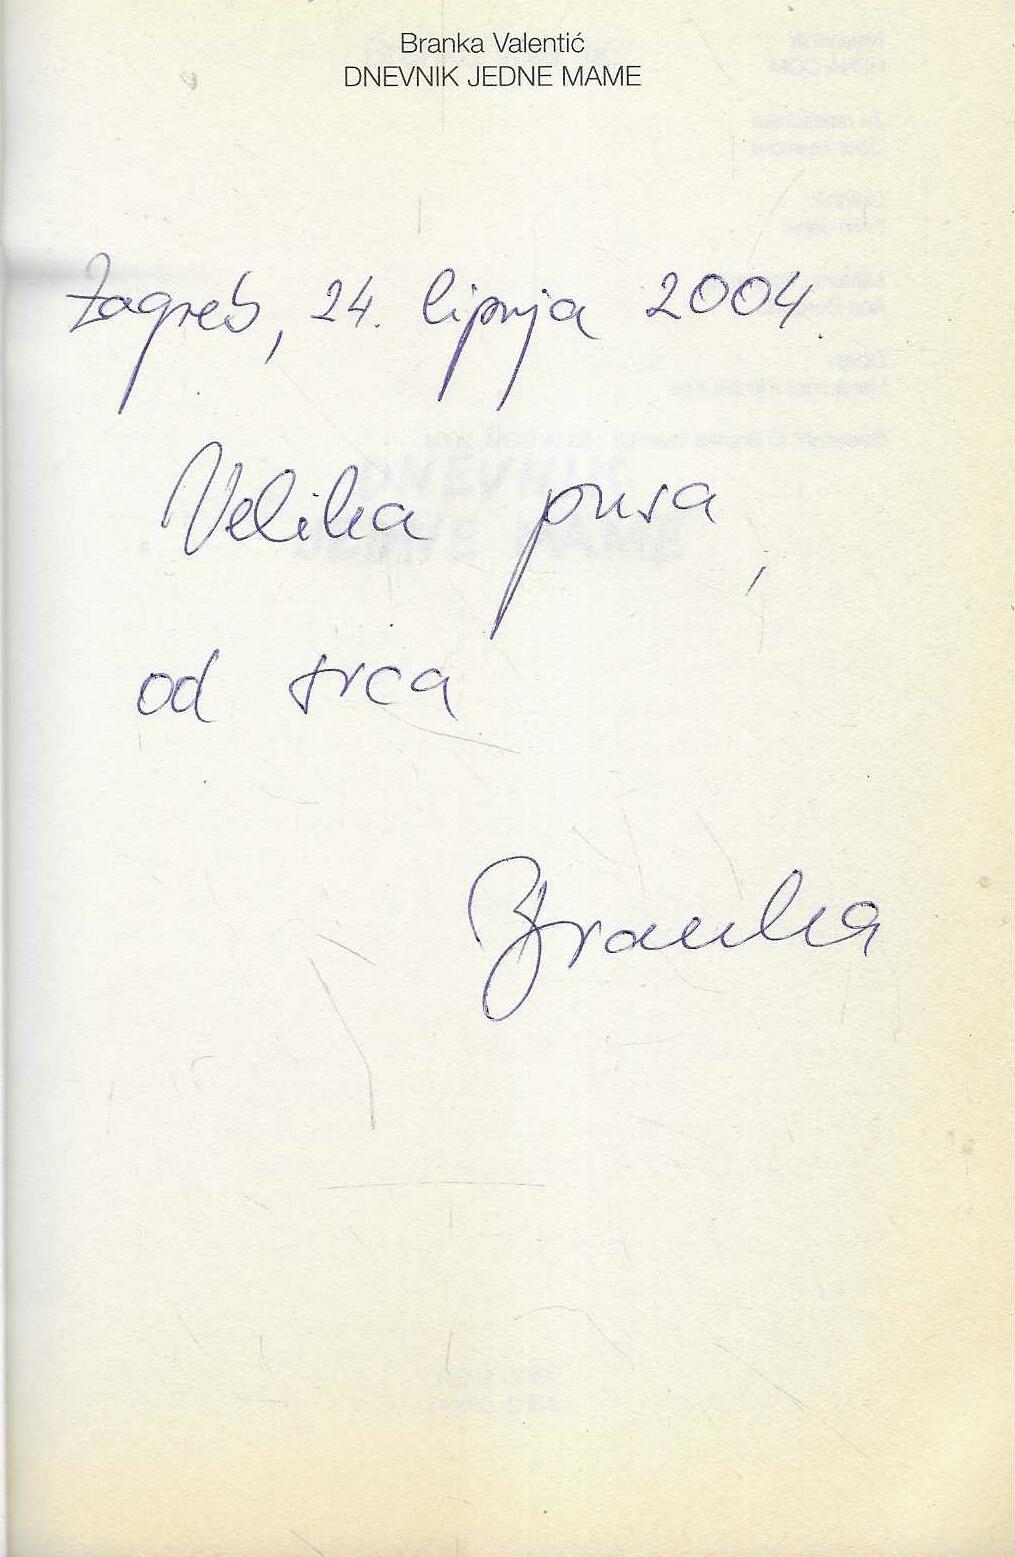 Branka Valentić
DNEVNIK JEDNE MAME
Zagreb, 24. lipnja 2004.
Velika pusa,
od srca
Branka